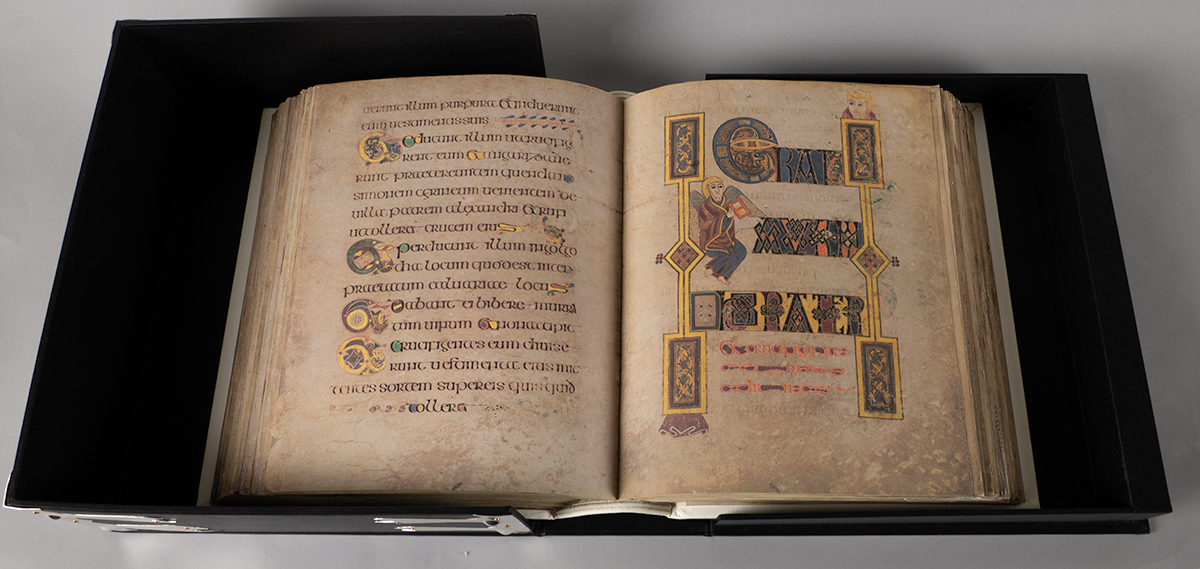 uerunt illum purpura et induerunt
eum uestimentis suis
Et educunt illum ut crucifig
erent eum Et angarizaue
runt praetereuntem quendam
simonem cyrineum uenientem de
uilla patrem alexandri et rufi
ut tolleret crucem eius
Et perducunt illum in golgo
tha locum quod est inter
praetatum caluariae locus
Et dabant ei bibere murra
tum uinum Et non accepit
Et crucifigentes eum diuise
runt uestimenta eius mit
tentes sortem super eis quis quid
tolleret
ERAT
AUTEM